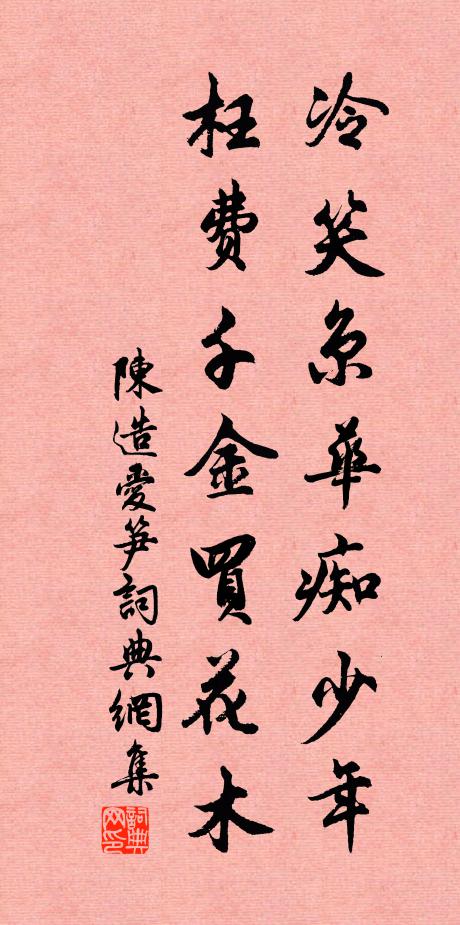 冷笑京華痴少年
枉費千金買花木
陳造愛筍詞典網集
詞典网印